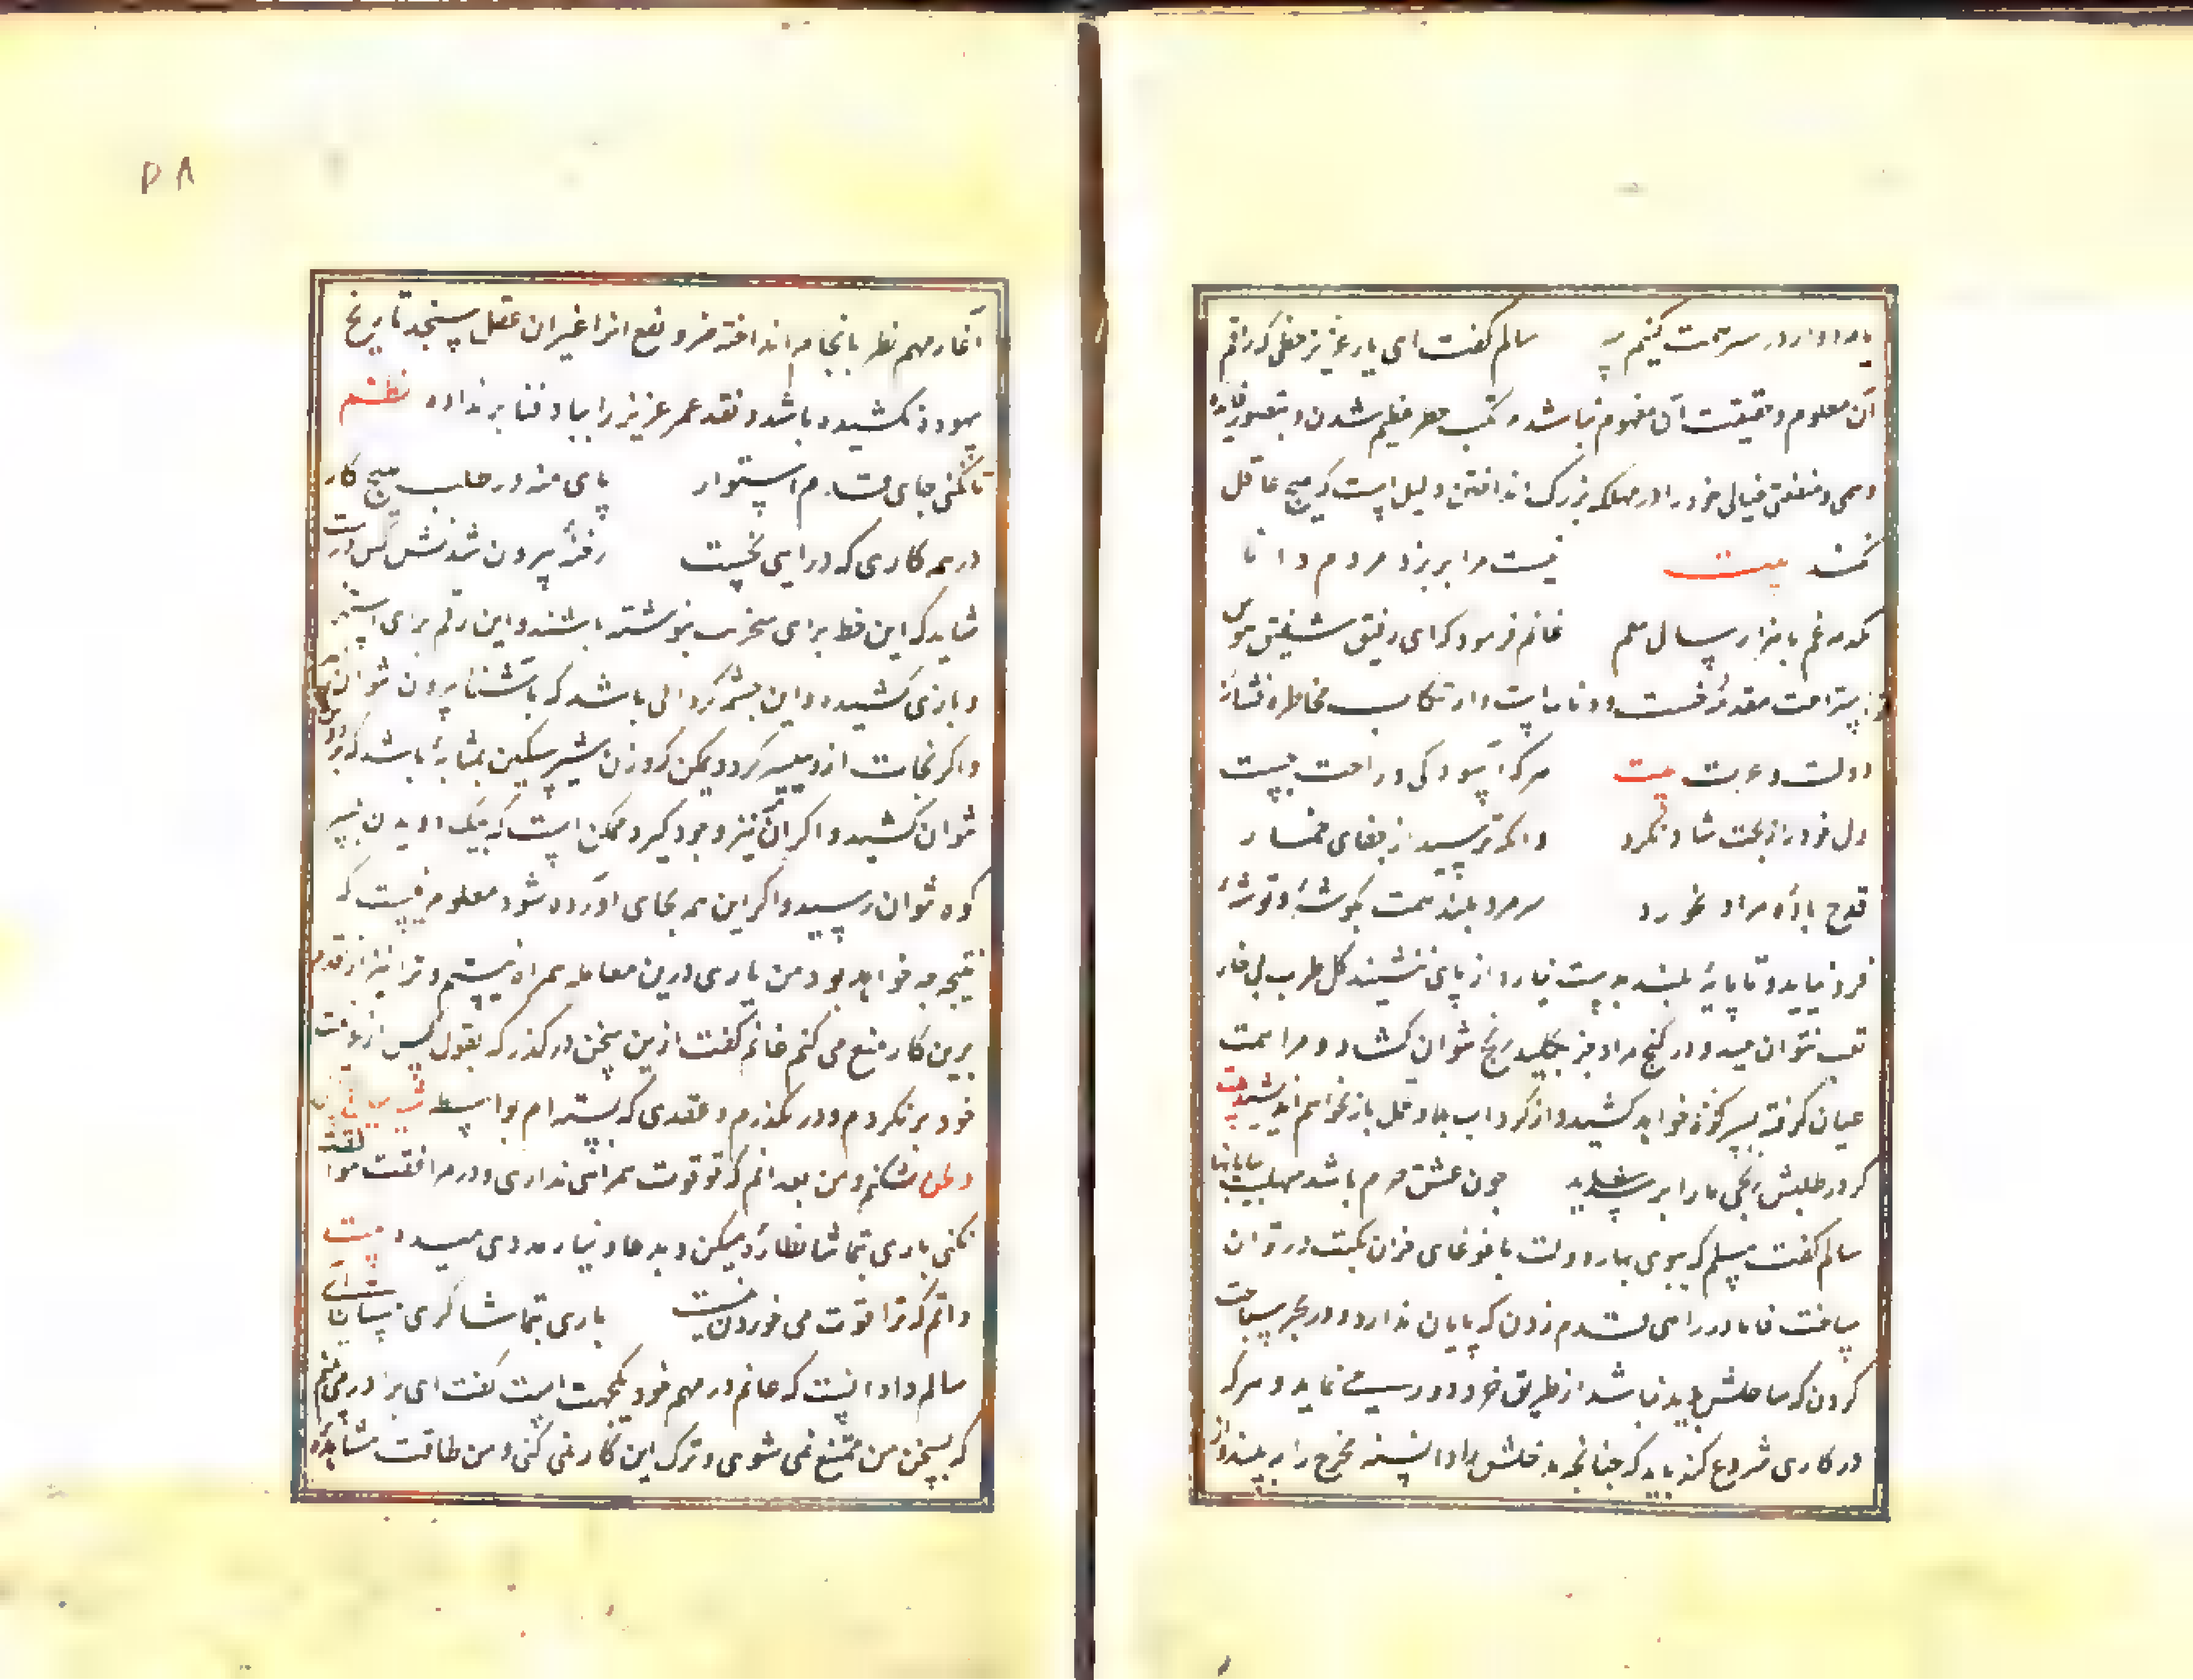 یا مراداوار در سر همت کنیم سالم گفت ای یار عزیز خطی که راقم
آن معلوم و حقیقت آن مفهوم نباشد مرتکب خطر عظیم شدن و بتصور فایده
وهمی و منفعتی خیالی خود را در مهلکه بزرگ انداختن دلیل است که هیچ عاقل
نکند بیت نیست مر ابرزد مردم دانا
یکدمه غم با هزار سال تنعم غانم فرمود که ای رفیق شفیق هوس
استراحت مقدمه خست و دناءتست و ارتکاب مخاطره نشانه
دولت و عزت بیت هر که آسودگی و راحت جست
دل خود را ز بخت شاد نکرد وانکه ترسید از جفای خمار
قدح باده مراد نخورد مرد بلند همت بگوشه و توشه
فرو نیاید و تا پایه بلند بدست نیارد از پای ننشیند گل طرب بی خار
تعب نتوان چید و در گنج مراد جز بکلید رنج نتوان گشاد و مرا همت
عنان گرفته بسر کوه خواهد کشید و از گرداب بلا و تحمل باز نخواهم اندیشید بیت
گر در طلبش رنجی ما را برسد شاید چون عشق حرم باشد سهلست بیابانها
سالم گفت مسلم که ببوی بهار دولت با غوغای خزان نکبت در توان
ساخت فاما در راهی قدم زدن که پایان ندارد و در بحر سیاحت
کردن که ساحلش پدید نباشد از طریق خرد دور می نماید و هر که
در کاری شروع کند باید که چنانچه مدخلش را دانسته مخرج را به بیند و از
۵۸
آغاز مهم نظر بانجام انداخته ضرر و نفع انرا بمیزان عقل بسنجد تا رنج
بیهوده نکشیده باشد و نقد عمر عزیز را بباد فنا بر نداده نظم
تا نکنی جای قدم استوار پای منه در طلب هیچ کار
در همه کاری که درایی نخست رخنه بیرون شدنش کن درست
شاید که این خط برای سخریت نوشته باشند و این رقم برای استهزا
و بازی کشیده و این چشمه گردابی باشد که باشنا بیرون نتوان
و اگر نجات ازو میسر گردد ممکن که وزن شیر سنگین بمثابه باشد که بر دوش
نتوان کشید و اگر ان نیز وجود گیرد ممکن است که بیک دویدن بسر
کوه نتوان رسید و اگر این همه بجای آورده شود معلوم نیست که
نتیجه چه خواهد بود من باری درین معامله همراه نیستم و ترا نیز از اقدام
برین کار منع می کنم غانم گفت ازین سخن در گذر که بقول کس از عزیمت
خود بر نگردم و در نگذرم و عقدی که بسته ام بوسواسه شیاطین
و طن نشکنم و من میدانم که تو قوت همراهی نداری و در مرافقت موافقت
نکنی باری بتماشا نظاره میکن و بدعا و نیاز مددی میده بیت
دانم که ترا قوت می خوردن نیست باری بتماشا گری مستان آی
سالم دانست که غانم در مهم خود یکجهت است گفت ای برادر می بینم
که بسخن من ممتنع نمی شوی و ترک این کار نمی کنی و من طاقت مشاهده